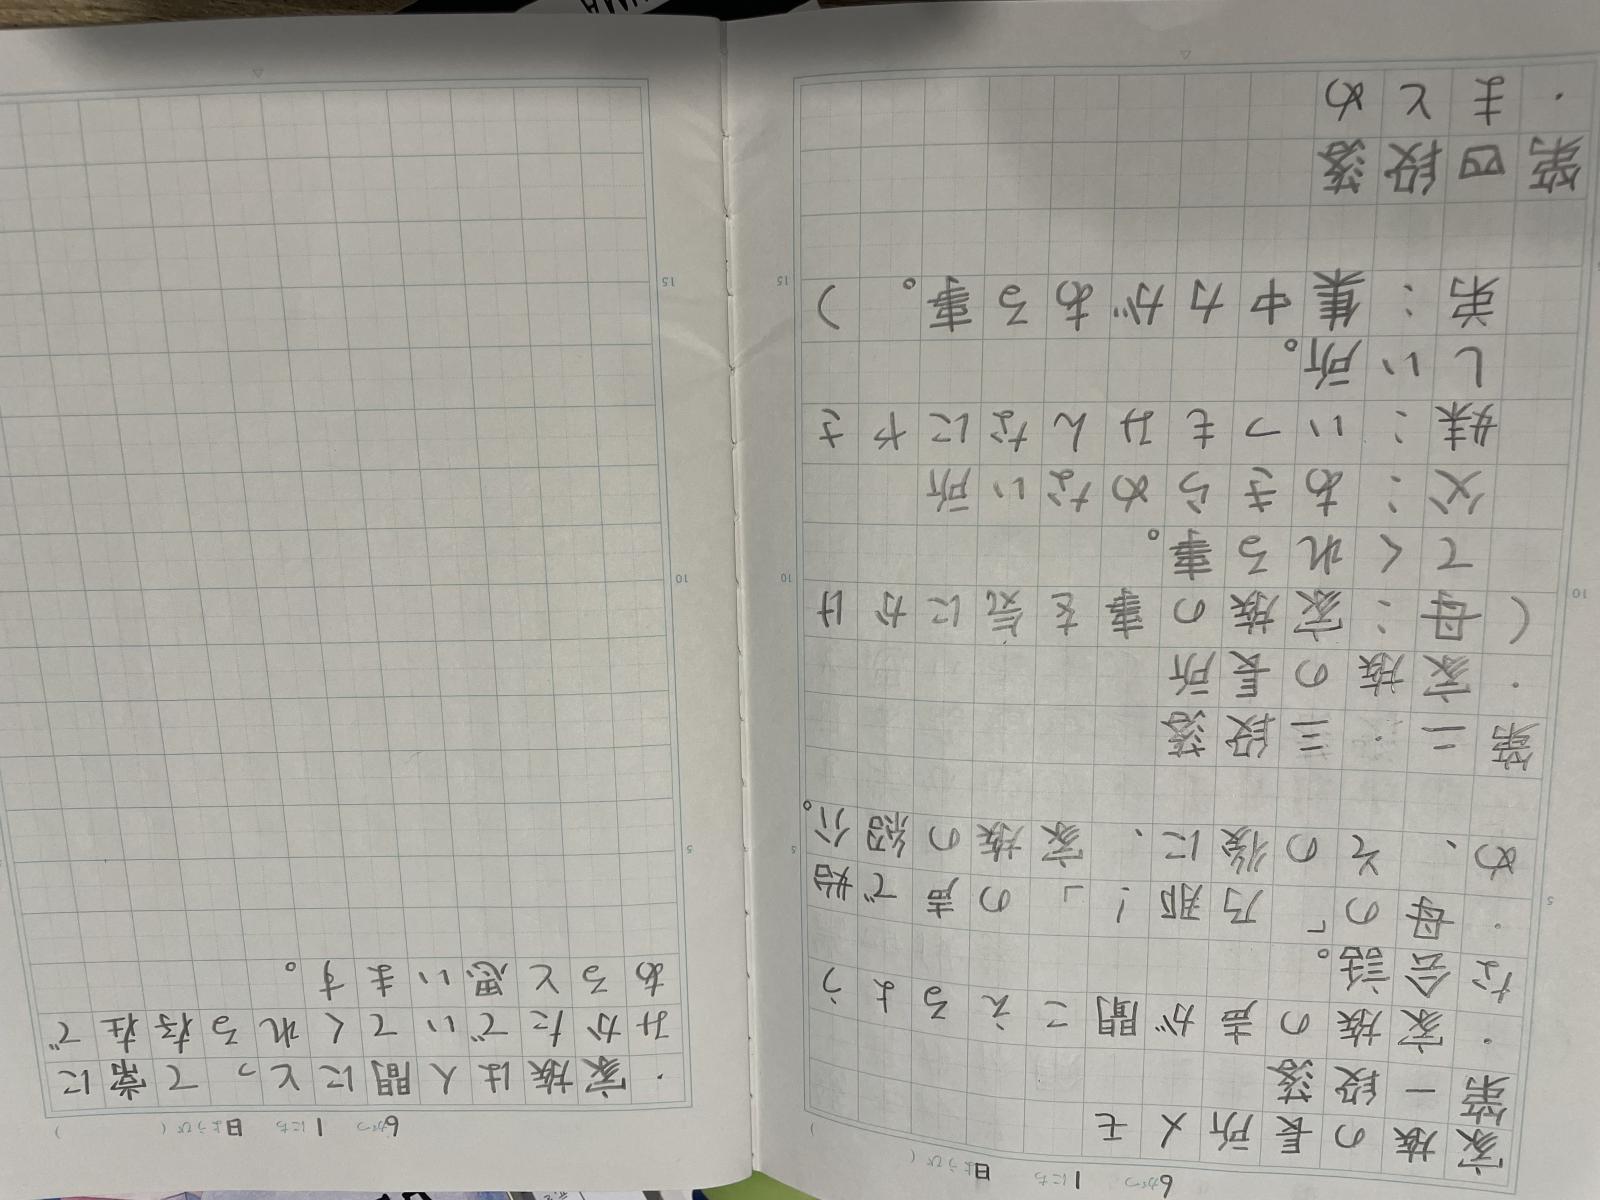 6がつ 1にち 日ようび ( )
家族の長所メモ
第一段落
・家族の声が聞こえるよう
な会話。
・母の「乃那!」の声で始
め、その後に、家族の紹介。
第二・三段落
・家族の長所
(母:家族の事を気にかけ
てくれる事。
父:あきらめない所
妹:いつもみんなにやさ
しい所。
弟:集中力がある事。)
第四段落
・まとめ
5
10
15
6がつ 1にち 日ようび ( )
・家族は人間にとって常に
みかたでいてくれる存在で
あると思います。
5
10
15